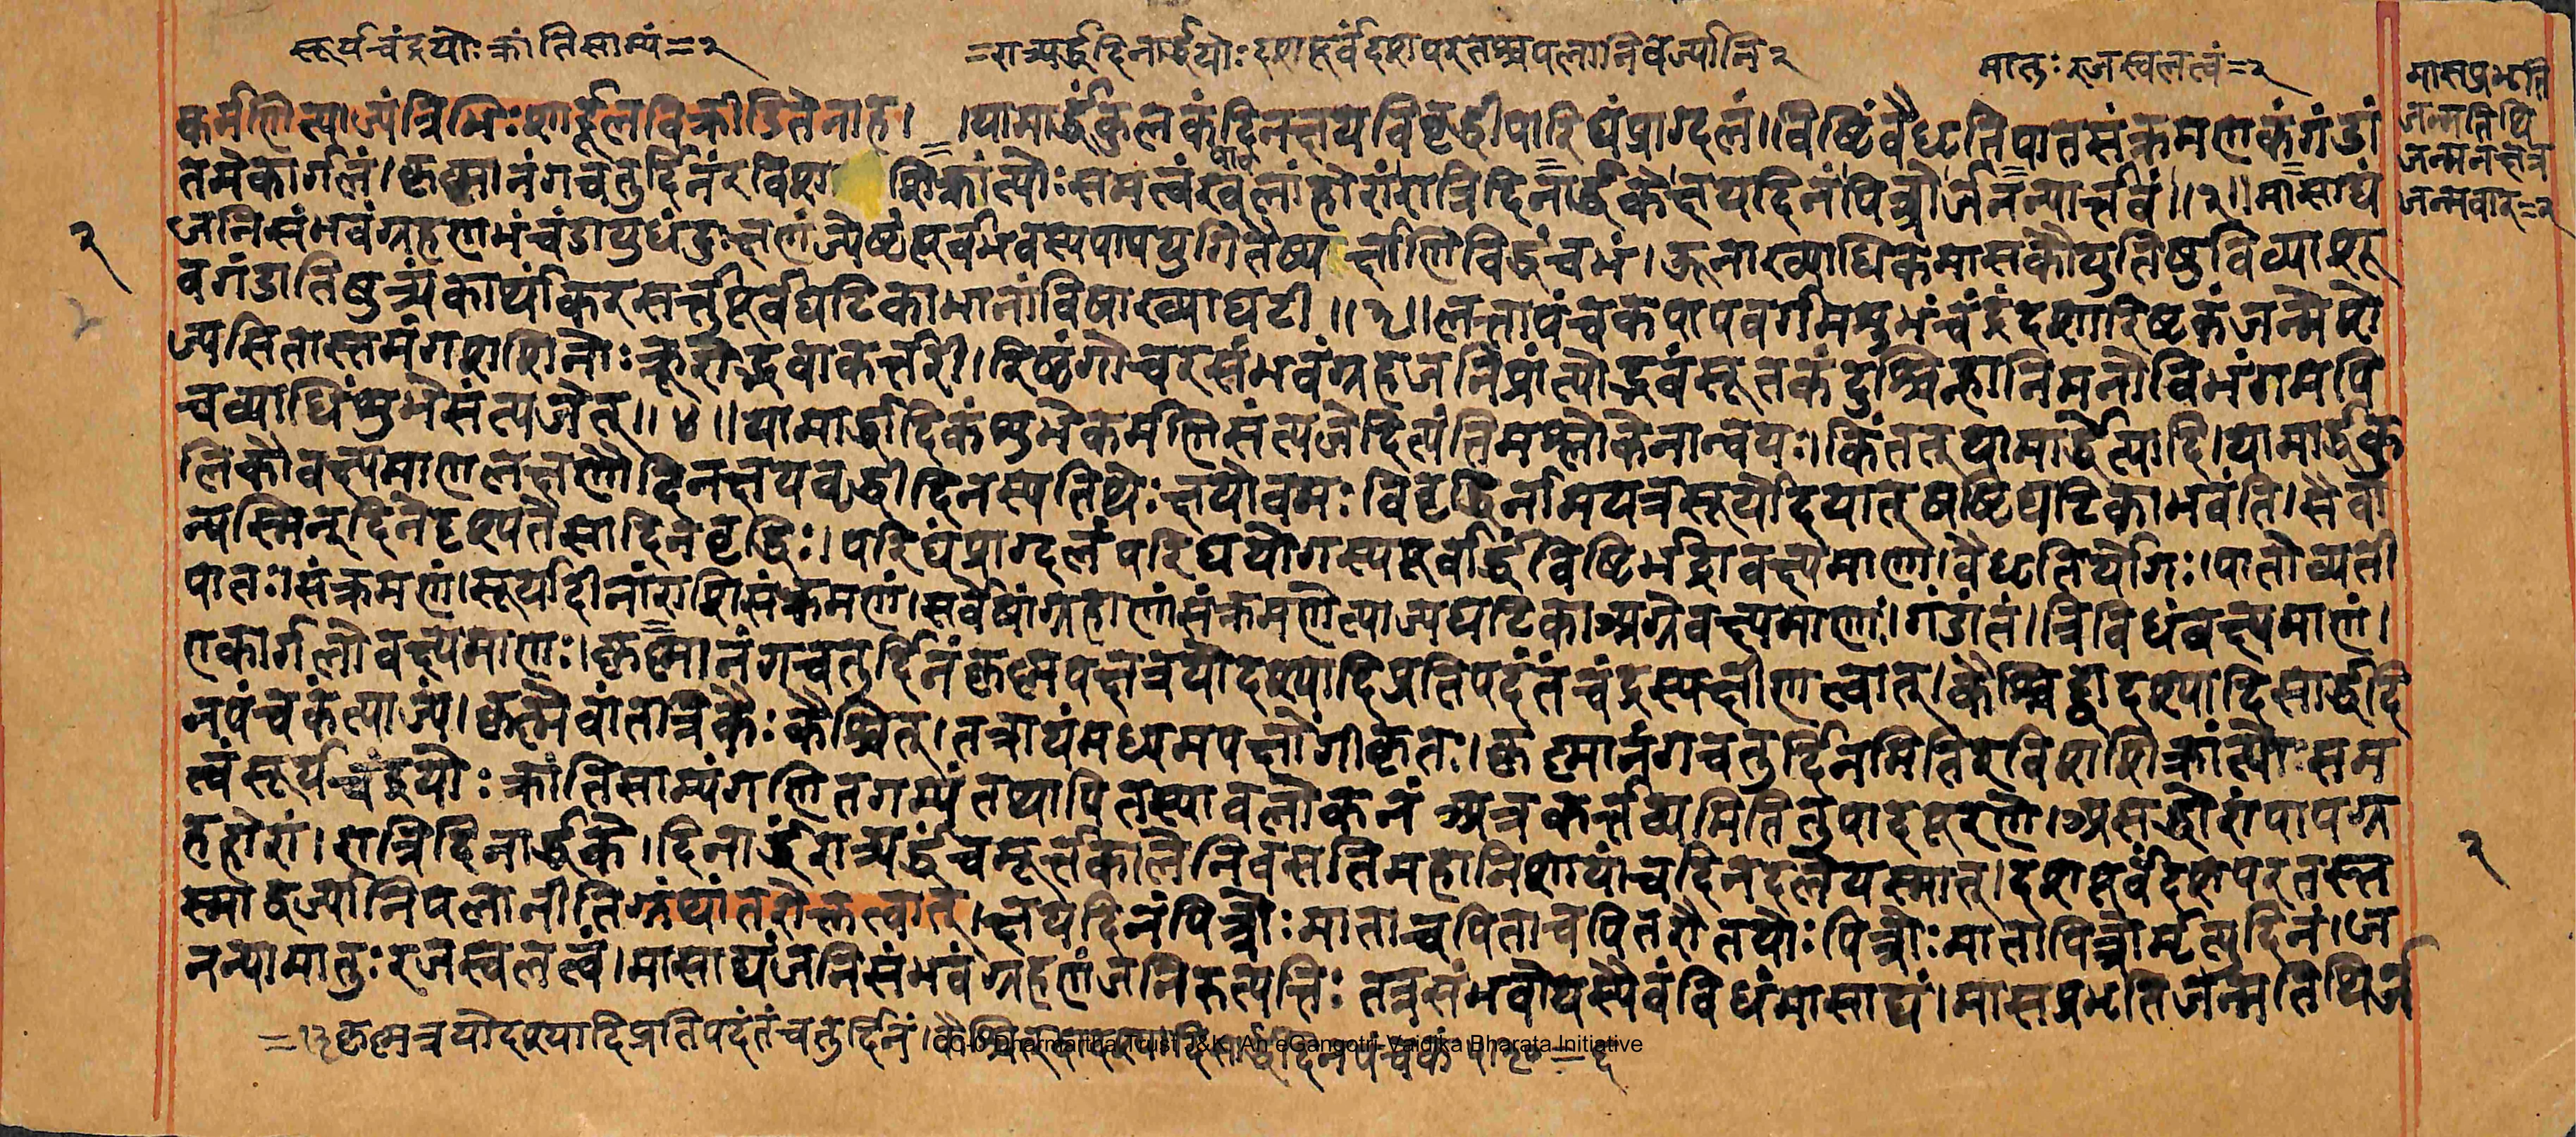 सूर्यचंद्रयोः क्रांतिसाम्यं=२
=रात्र्यर्द्धदिनार्द्धयोः दशपूर्वदशपरतश्चपलानिवर्ज्यानि२
मातुः रजस्वलत्वं=२
मासप्रभृति
जन्मतिथि
जन्मनक्षत्र
जन्मवार=२
कर्मणित्याज्यंत्रिभिःशार्दूलविक्रीडितेनाह। ।यामार्द्धंकुलकंदिनक्षयविवृद्धीपारिघंप्राग्दलं।विष्टिंवैधृतिपातसंक्रमणकंगंडां
तमेकार्गलं।कृष्णानंगचतुर्दिनंरविश शिक्रांत्योःसमत्वंखलांहोरांरात्रिदिनार्द्धकेक्षयदिनंपित्रोर्जनन्यार्त्तवं॥२॥मासाद्यं
जनिसंभवंग्रहणभंचंडायुधंदुःक्षणंज्येष्ठंपूर्वभवस्यपापयुगितैष्या र्क्षाणिविद्धंचभं।ऊनाख्याधिकमासकौयुतिषुविव्याशू
वगंडातिषुत्र्यंकाथांकरसर्त्तुपूर्वघटिकाभानांविषाख्याघटी॥३॥लत्तापंचकपापवर्गमशुभंचंद्रंदशारिष्टकंजन्मेशे
ज्यसितास्तमंगशशिनोःक्रूरोद्भवाकर्त्तरी।रिष्टंगोचरसंभवंग्रहजनिप्रांत्योद्भवंसूतकंदुश्चिह्नानिमनोविभंगमपि
चव्याधिंशुभेसंत्यजेत्॥४॥यामार्द्धादिकंशुभेकर्मणिसंत्यजेदित्यंतिमश्लोकेनान्वयः।किंतत्यामार्द्धेत्यादि।यामार्द्धकु
लिकौवक्ष्यमाणलक्षणौ।दिनक्षयवृद्धीदिनस्यतिथेःक्षयोवमः विवृद्धिर्नामयत्रसूर्योदयात्षष्टिघटिकाभवंति।सैवा
न्यस्मिन्दिनेदृश्यतेसादिनवृद्धिः।परिघंप्राग्दलंपरिघयोगस्यपूर्वार्द्धं।विष्टिभद्रावक्ष्यमाणा।वैधृतियोगः।पातोव्यती
पातः।संक्रमणं।सूर्यादीनांराशिसंक्रमणं।सर्वेषांग्रहाणांसंक्रमणेत्याज्यघटिकाअग्रेवक्ष्यमाणाः।गंडांतं।त्रिविधंवक्ष्यमाणं।
एकार्गलोवक्ष्यमाणः।कृष्णानंगचतुर्दिनंकृष्णपक्षत्रयोदश्यादिप्रतिपदंतंचंद्रस्यक्षीणत्वात्।कैश्चिद्द्वादश्यादिसार्द्धदि
नपंचकंत्याज्यं। कैश्चित्।तत्रायंमध्यमपक्षोंगीकृतः।कृष्णानंगचतुर्दिनमितिरविशशिक्रांत्योःसम
त्वंसूर्यचंद्रयोः क्रांतिसाम्यंगणितगम्यंतथापितस्यावलोकनं अत्रकर्त्तव्यमितितुपादपूरणे।असद्धोरांपापग्र
हहोरां।रात्रिदिनार्द्धके।दिनार्द्धंरात्र्यर्द्धंच निवसतिमहानिशायांचदिनदलेयस्मात्।दशपूर्वंदशपरतस्त
स्माद्वर्ज्यानिपलानीतिग्रंथांतरोक्तत्वात्।क्षयदिनंपित्रोः माताचपिताचपितरौतयोःपित्रोःमातापित्रोर्मृत्युदिनं।ज
नन्यामातुःरजस्वलत्वं।मासाद्यंजनिसंभवंग्रहणंजनिरुत्पत्तिः तत्रसंभवोयस्यैवंविधंमासाद्यं।मासप्रभृतिजन्मतिथिर्ज
=१३कृष्णत्रयोदश्यादिप्रतिपदंतंचतुर्दिनं।कैश्चित् सार्द्धदिनपंचकं
२
२
२
CC-0 Dharmartha Trust J&K. An eGangotri-Vaidika Bharata Initiative